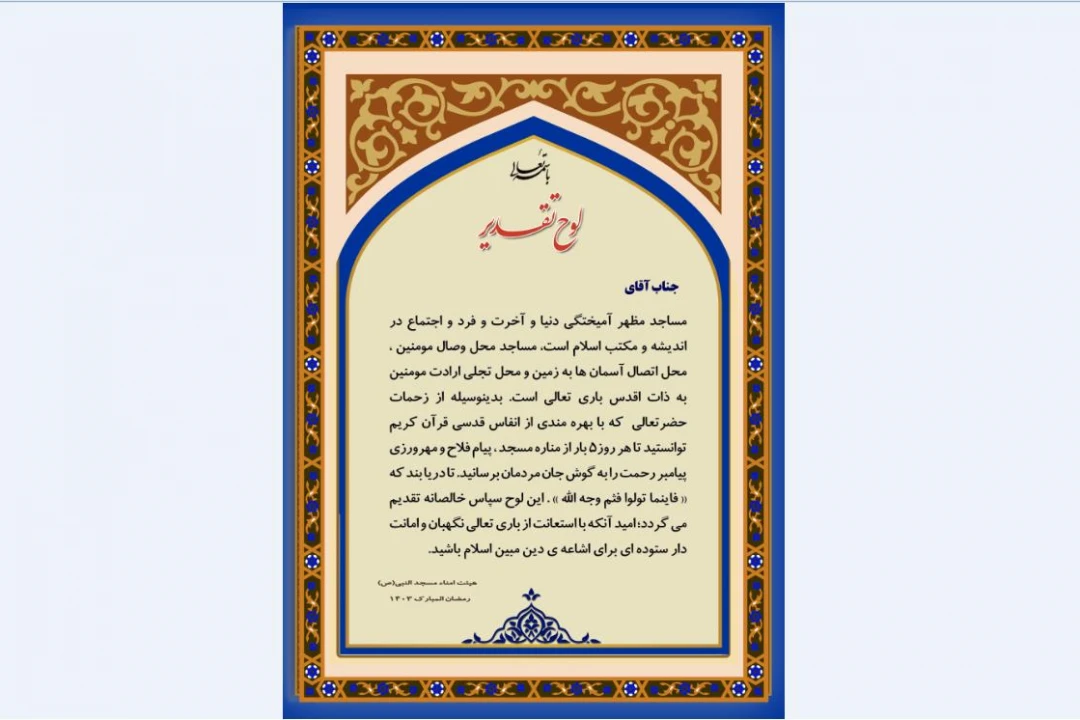 باسمه تعالی
لوح تقدیر
جناب آقای
مساجد مظهر آمیختگی دنیا و آخرت و فرد و اجتماع در
اندیشه و مکتب اسلام است. مساجد محل وصال مومنین ،
محل اتصال آسمان ها به زمین و محل تجلی ارادت مومنین
به ذات اقدس باری تعالی است. بدینوسیله از زحمات
حضرتعالی که با بهره مندی از انفاس قدسی قرآن کریم
توانستید تا هر روز ۵ بار از مناره مسجد ، پیام فلاح و مهرورزی
پیامبر رحمت را به گوش جان مردمان برسانید. تا دریابند که
« فاینما تولوا فثم وجه الله » . این لوح سپاس خالصانه تقدیم
می گردد؛ امید آنکه با استعانت از باری تعالی نگهبان و امانت
دار ستوده ای برای اشاعه ی دین مبین اسلام باشید.
هیئت امناء مسجد النبی(ص)
رمضان المبارک ۱۴۰۳